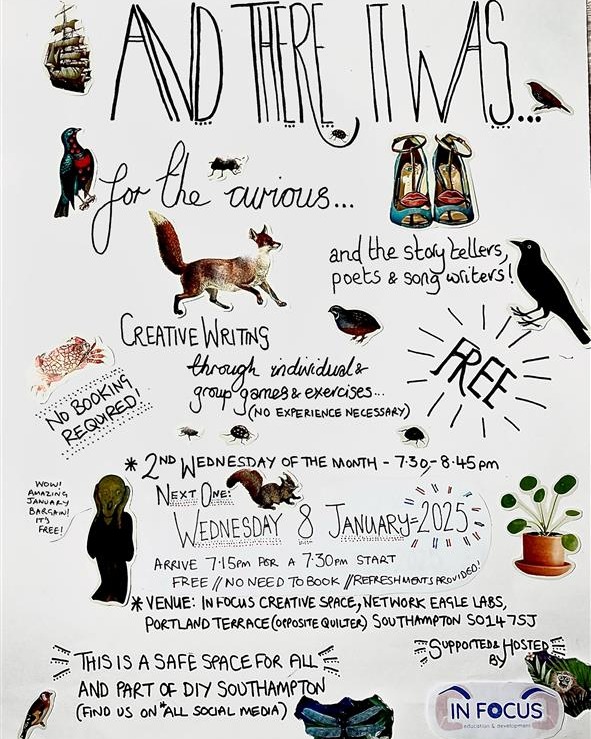 AND THERE IT WAS...
for the curious...
and the story tellers,
poets & song writers!
CREATIVE WRITING
through individual &
group games & exercises...
(NO EXPERIENCE NECESSARY)
FREE
NO BOOKING
REQUIRED!
* 2ND WEDNESDAY OF THE MONTH - 7:30 - 8:45pm
NEXT ONE:
WEDNESDAY 8 JANUARY=2025
WOW!
AMAZING
JANUARY
BARGAIN!
IT'S
FREE!
ARRIVE 7.15PM FOR A 7:30PM START
FREE // NO NEED TO BOOK // REFRESHMENTS PROVIDED!
* VENUE: IN FOCUS CREATIVE SPACE, NETWORK EAGLE LABS,
PORTLAND TERRACE (OPPOSITE QUILTER) SOUTHAMPTON SO14 7SJ
THIS IS A SAFE SPACE FOR ALL
AND PART OF DIY SOUTHAMPTON
(FIND US ON *ALL SOCIAL MEDIA)
SUPPORTED & HOSTED
BY
IN FOCUS
education & development